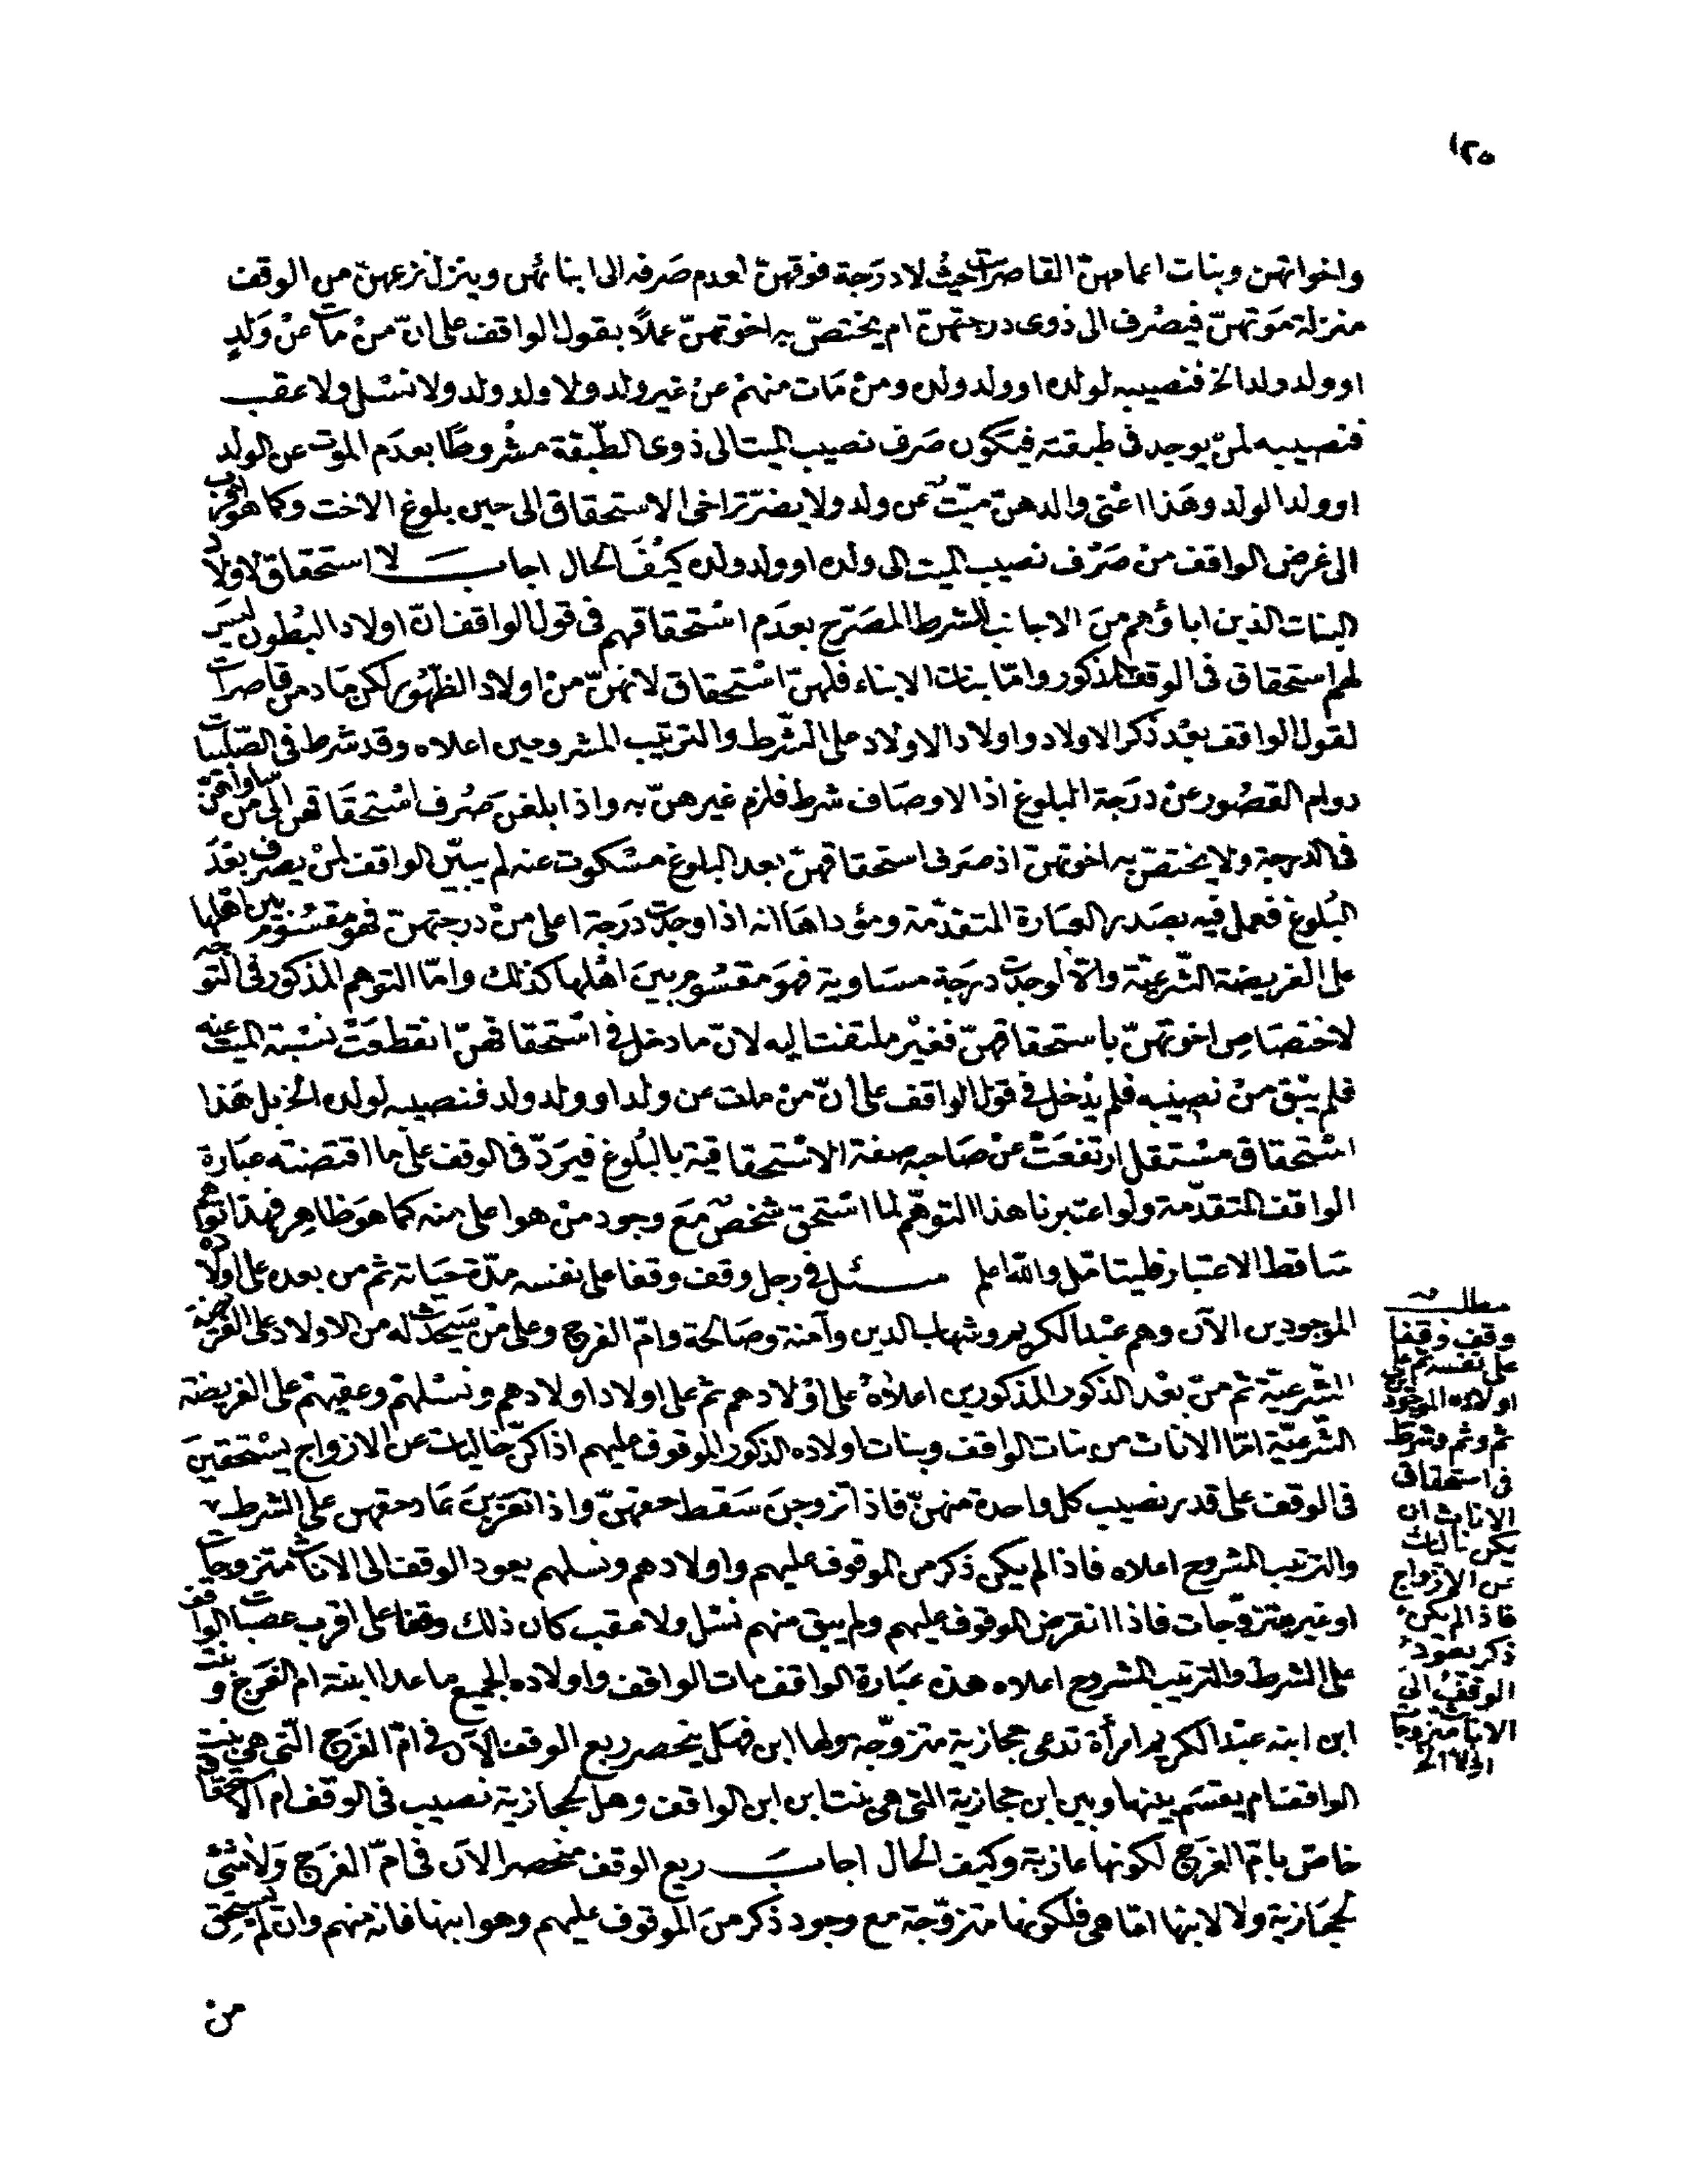 ١٢٥
واخواتهن وبنات اعمامهن القاصرات حيث لا درجة فوقهن لعدم صرفه الى ابنائهن وينزل نزعهن من الوقف
منزلة موتهن فيصرف الى ذوى درجتهن ام يختص به اخوتهن عملا بقول الواقف على ان من مات عن ولد
او ولد ولد الخ فنصيبه لولده او ولد ولده ومن مات منهم عن غير ولد ولا ولد ولد ولا نسل ولا عقب
فنصيبه لمن يوجد فى طبقته فيكون صرف نصيب الميت الى ذوى الطبقة مشروطا بعدم الموت عن الولد
او ولد الولد وهذا اعنى والدهن ميت عن ولد ولا يضر تراخى الاستحقاق الى حين بلوغ الاخت وكما هو اقرب
الى غرض الواقف من صرف نصيب الميت الى ولده او ولد ولده كيف الحال اجاب لا استحقاق لاولاد
البنات الذين اباؤهم من الاجانب للشرط المصرح بعدم استحقاقهم فى قول الواقف ان اولاد البطون ليس
لهم استحقاق فى الوقف المذكور واما بنات الابناء فلهن استحقاق لانهن من اولاد الظهور لكن ما دمن قاصرات
لقول الواقف بعد ذكر الاولاد واولاد الاولاد على الشرط والترتيب المشروحين اعلاه وقد شرط فى الصلبيات
دوام القصور عن درجة البلوغ اذ الاوصاف شرط فلزم غيرهن به واذا بلغن صرف استحقاقهن الى من ساواهن
فى الدرجة ولا يختص به اخوتهن اذ صرف استحقاقهن بعد البلوغ مسكوت عنه لم يبين الواقف لمن يصرف بعد
البلوغ فعمل فيه بصدر العبارة المتقدمة ومؤداها انه اذا وجدت درجة اعلى من درجتهن فهو مقسوم بين اهلها
على الفريضة الشرعية والا لو وجدت درجة مساوية فهو مقسوم بين اهلها كذلك واما التوهم المذكور فى التوجه
لاختصاص اخوتهن باستحقاقهن فغير ملتفت اليه لان ما دخل فى استحقاقهن انقطعت نسبة الميت عنه
فلم يبق من نصيبه فلم يدخل فى قول الواقف على ان من مات عن ولد او ولد ولد فنصيبه لولده الخ بل هذا
استحقاق مستقل ارتفعت عن صاحبه صفة الاستحقاقية بالبلوغ فيرد فى الوقف على ما اقتضته عبارة
الواقف المتقدمة ولو اعتبرنا هذا التوهم لما استحق شخص مع وجود من هو اعلى منه كما هو ظاهر فهذا توهم
ساقط الاعتبار فليتامل والله اعلم سئل فى رجل وقف وقفا على نفسه مدة حياته ثم من بعده على اولاده
الموجودين الآن وهم عبد الكريم وشهاب الدين وآمنة وصالحة وام الفرج وعلى من سيحدث له من الاولاد على الفريضة
الشرعية ثم من بعد الذكور المذكورين اعلاه على اولادهم ثم على اولاد اولادهم ونسلهم وعقبهم على الفريضة
الشرعية اما الاناث من بنات الواقف وبنات اولاده الذكور الموقوف عليهم اذا كن خاليات عن الازواج يستحقين
فى الوقف على قدر نصيب كل واحدة منهن فاذا تزوجن سقط حقهن واذا تعزبن عاد حقهن على الشرط
والترتيب المشروح اعلاه فاذا لم يكن ذكر من الموقوف عليهم واولادهم ونسلهم يعود الوقف الى الاناث متزوجات
او غير متزوجات فاذا انقرض الموقوف عليهم ولم يبق منهم نسل ولا عقب كان ذلك وقفا على اقرب عصبات الواقف
على الشرط والترتيب المشروح اعلاه هذه عبارة الواقف مات الواقف واولاده الجميع ما عدا ابنته ام الفرج و بنت
ابن ابنه عبد الكريم امرأة تدعى حجازية متزوجة ولها ابن فهل ينحصر ريع الوقف الآن فى ام الفرج التى هى بنت
الواقف ام يقسم بينها وبين ابن حجازية التى هى بنت ابن ابن الواقف وهل لحجازية نصيب فى الوقف ام الاستحقاق
خاص بام الفرج لكونها عازبة وكيف الحال اجاب ريع الوقف منحصر الآن فى ام الفرج ولا شئ
لحجازية ولا لابنها اما هى فلكونها متزوجة مع وجود ذكر من الموقوف عليهم وهو ابنها فانه منهم وان لم يستحق
من
مطلب
وقف وقفا
على نفسه ثم على
اولاده الموجودين
ثم وثم وشرط
فى استحقاق
الاناث ان
يكن خاليات
عن الازواج
فاذا لم يكن
ذكر يعود
الوقف الى
الاناث متزوجات